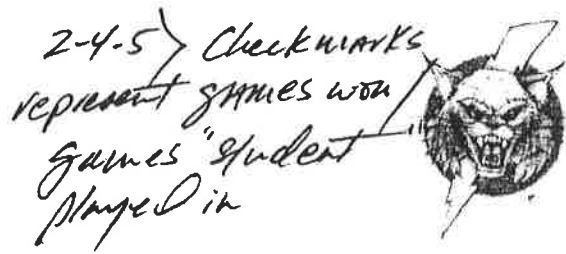 2-4-5> Checkmarks
represent games won
games "student
played in